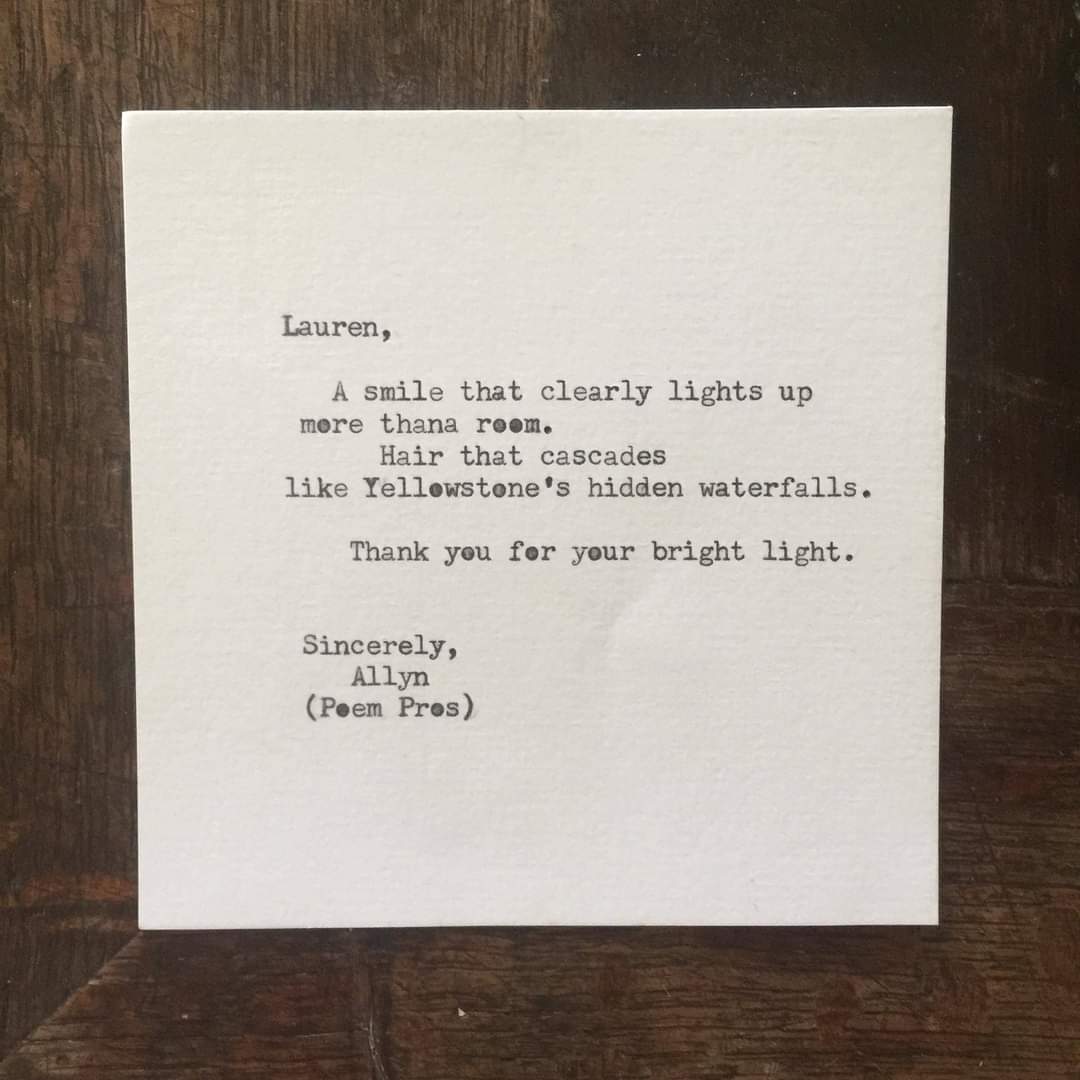 Lauren,
A smile that clearly lights up
more thana room.
Hair that cascades
like Yellowstone's hidden waterfalls.
Thank you for your bright light.
Sincerely,
Allyn
(Poem Pros)